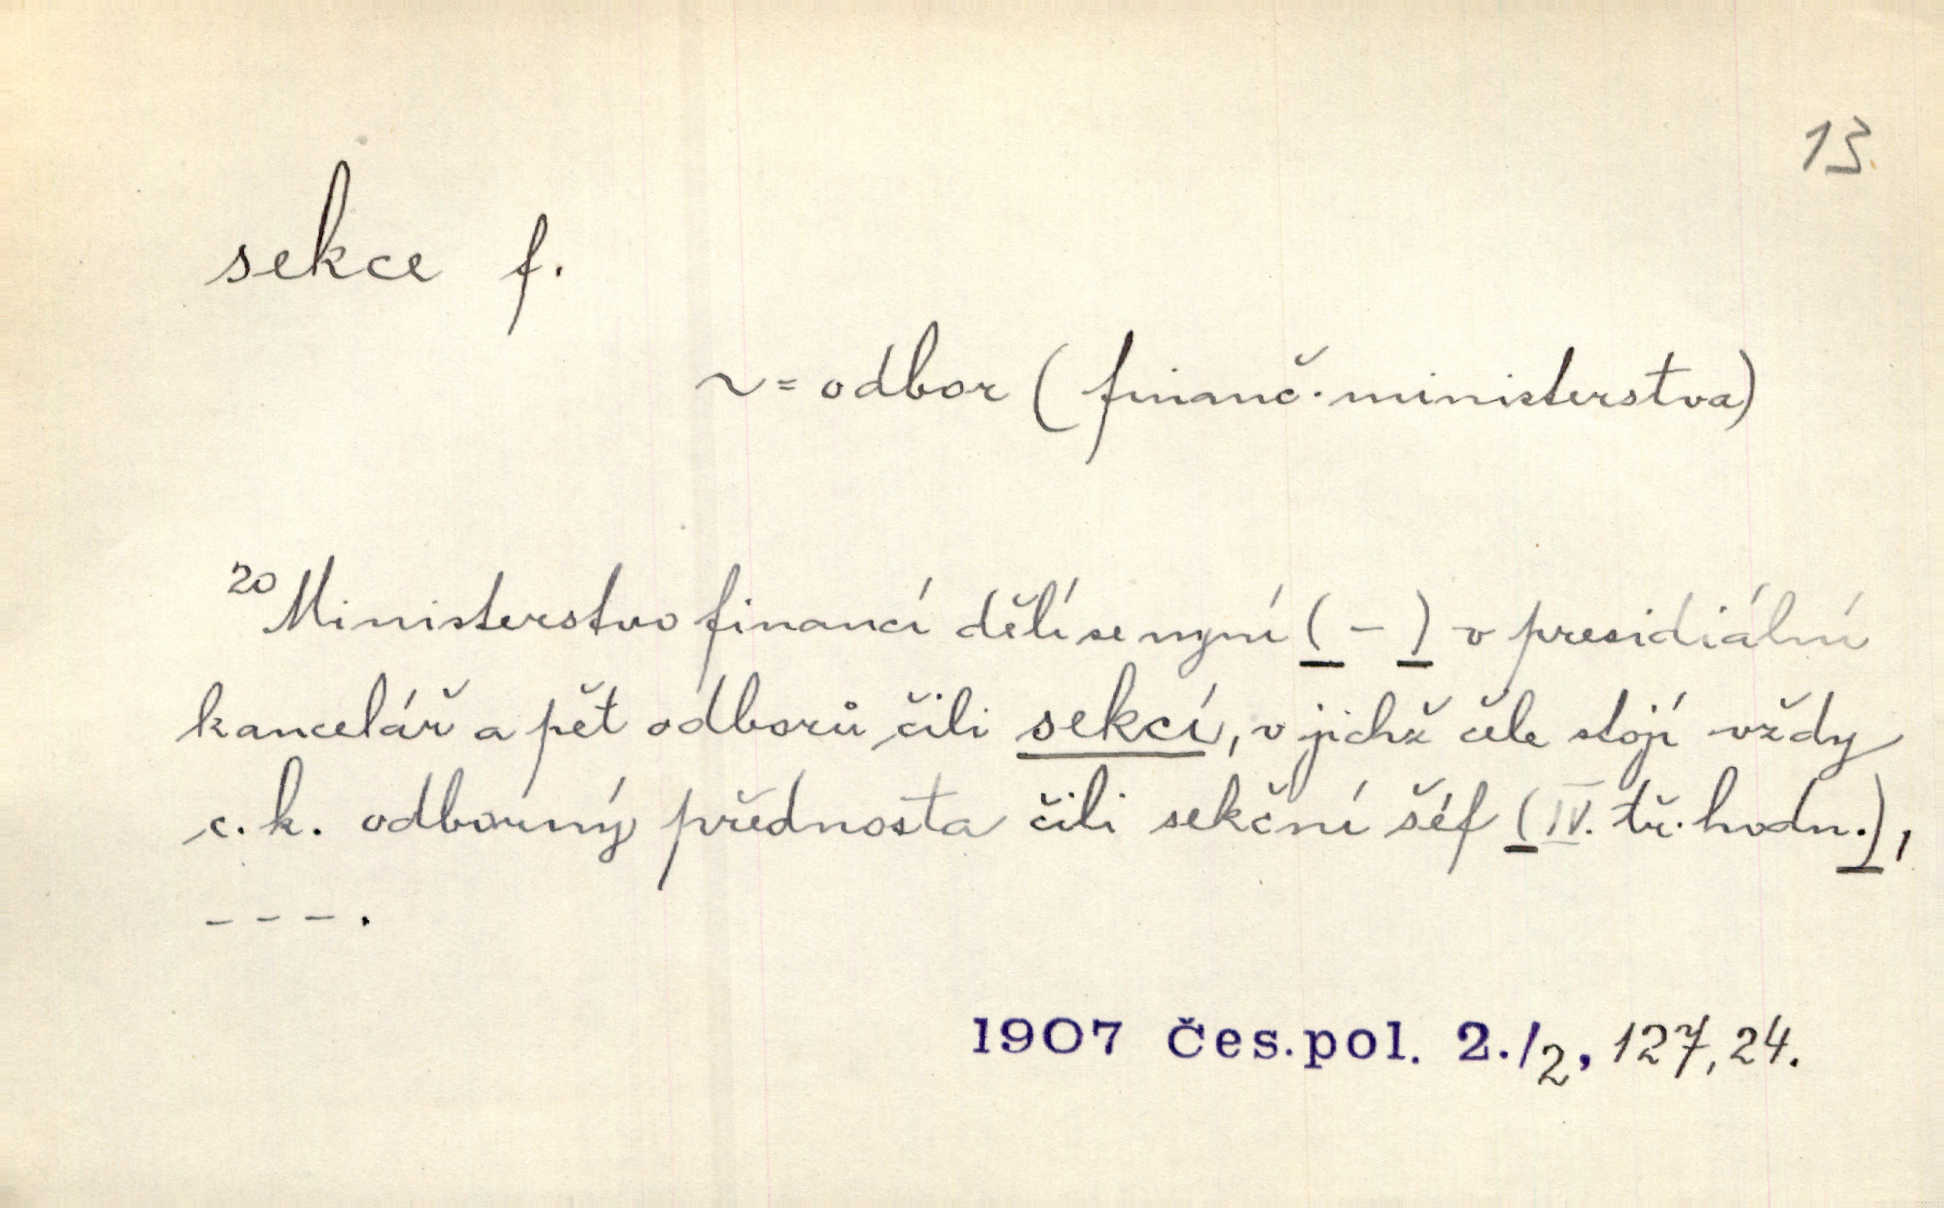 13.
sekce f.
~ = odbor (finanč. ministerstva)
20 Ministerstvo financí dělí se nyní (-) v presidiální
kancelář a pět odborů čili sekcí, v jichž čele stojí vždy
c. k. odborný přednosta čili sekční šéf (IV. tř. hodn.),
---.
1907 Čes. pol. 2./2, 127, 24.